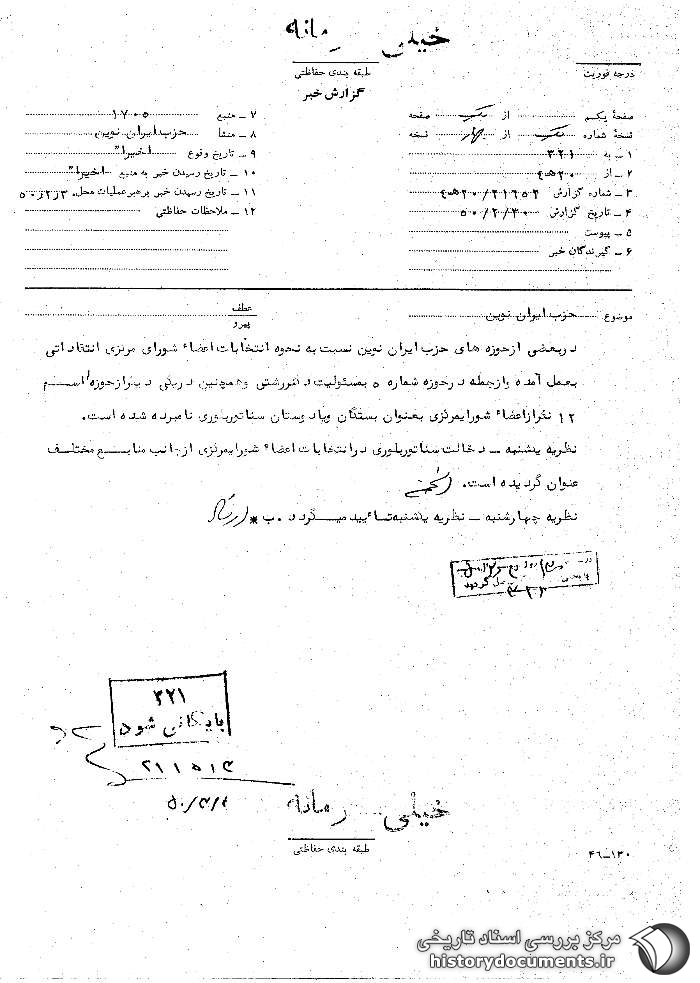 خیلی محرمانه
طبقه بندی حفاظتی
درجه فوریت
گزارش خبر
صفحهٔ یکم از یک صفحه
نسخهٔ شماره یک از چهار نسخه
۱ ــ به ۳۲۱
۲ ــ از ۲۰ﻫ۴
۳ ــ شماره گزارش ۲۰/۲۱۶۵۲ﻫ۴
۴ ــ تاریخ گزارش ۵۰/۲/۳۰
۵ ــ پیوست
۶ ــ گیرندگان خبر
۷ ــ منبع ۱۷۰۵
۸ ــ منشأ حزب ایران نوین
۹ ــ تاریخ وقوع اخیرا"
۱۰ ــ تاریخ رسیدن خبر به منبع اخیرا"
۱۱ ــ تاریخ رسیدن خبر برهبر عملیات محل
۱۲ ــ ملاحظات حفاظتی
موضوع حزب ایران نوین
عطف
پیرو
در بعضی از حوزه های حزب ایران نوین نسبت به نحوه انتخابات اعضاء شورای مرکزی انتقاداتی
بعمل آمده بازجمله در حوزه شماره ۵ بمسئولیت دکتر رشتی وهمچنین در یکی دیگر از حوزه ها اسم
۱۲ نفر از اعضاء شورایمرکزی بعنوان بستگان ویا دوستان سناتور بلوری نامبرده شده است.
نظریه یکشنبه ــ دخالت سناتور بلوری در انتخابات اعضاء شورایمرکزی از جانب منابع مختلف
عنوان گردیده است.
نظریه چهارشنبه ــ نظریه یکشنبه تائید میگردد. ب *
۳۲۱
بایگانی شود
۲۱۱۵۱۳
۵۰/۳/۴
خیلی محرمانه
طبقه بندی حفاظتی
۴۶-۱۳۰
مرکز بررسی اسناد تاریخی
historydocuments.ir